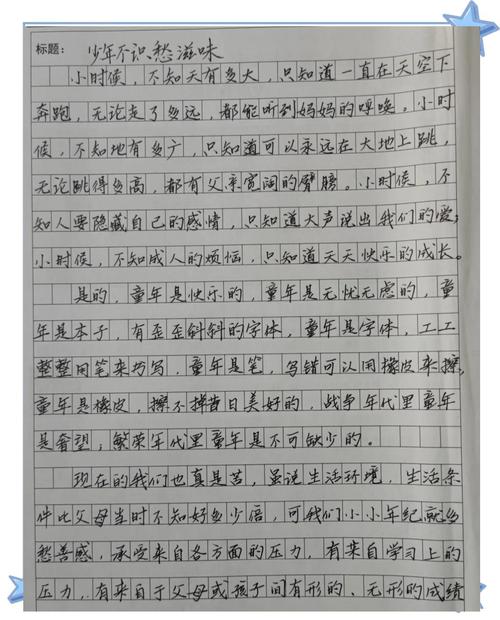 标题: 少年不识愁滋味
小时候,不知天有多大,只知道一直在天空下
奔跑,无论走了多远,都能听到妈妈的呼唤。小时
候,不知地有多广,只知道可以永远在大地上跳,
无论跳得多高,都有父亲宽阔的臂膀。小时候,不
知人要隐藏自己的感情,只知道大声说出我们的爱;
小时候,不知成人的烦恼,只知道天天快乐的成长。
是的,童年是快乐的,童年是无忧无虑的,童
年是本子,有歪歪斜斜的字体,童年是字体,工工
整整用笔来书写,童年是笔,写错可以用橡皮来擦,
童年是橡皮,擦不掉昔日美好的,战争年代里童年
是奢望,繁荣年代里童年是不可缺少的。
现在的我们也真是苦,虽说生活环境,生活条
件比父母当时不知好多少倍,可我们小小年纪就多
愁善感,承受来自各方面的压力,有来自学习上的
压力,有来自于父母或孩子间有形的、无形的成绩